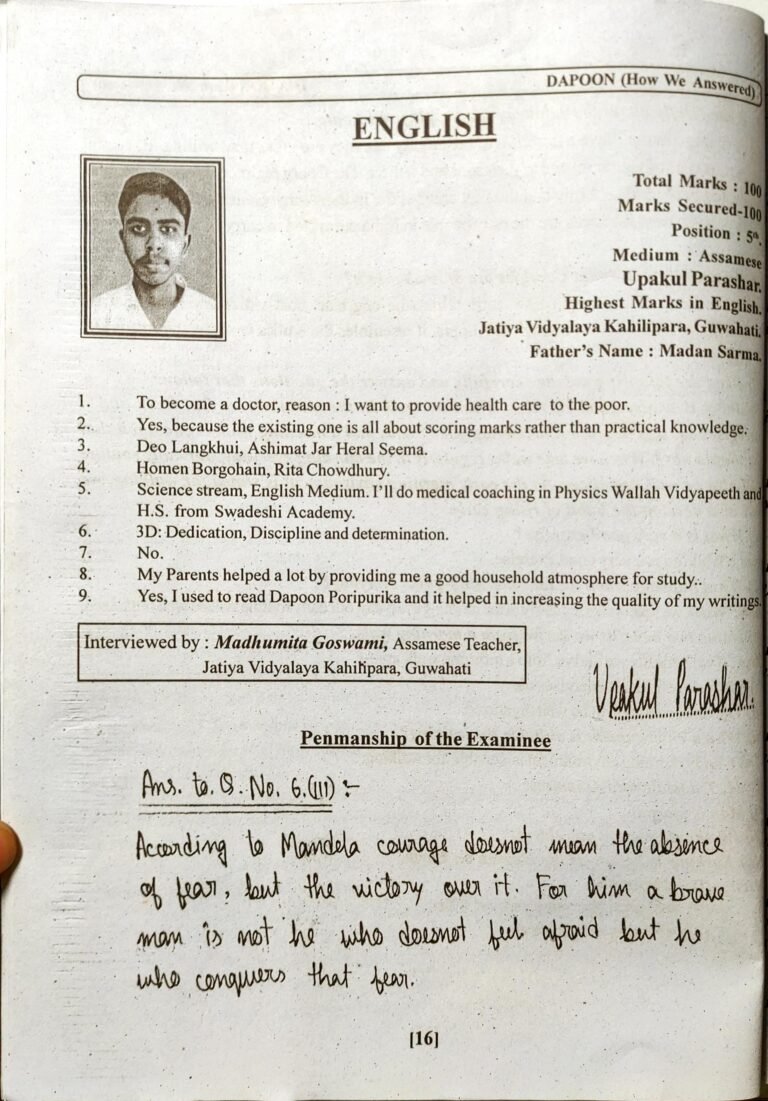 DAPOON (How We Answered)
ENGLISH
Total Marks : 100
Marks Secured-100
Position : 5th.
Medium : Assamese
Upakul Parashar.
Highest Marks in English.
Jatiya Vidyalaya Kahilipara, Guwahati.
Father's Name : Madan Sarma.
1. To become a doctor, reason : I want to provide health care to the poor.
2. Yes, because the existing one is all about scoring marks rather than practical knowledge.
3. Deo Langkhui, Ashimat Jar Heral Seema.
4. Homen Borgohain, Rita Chowdhury.
5. Science stream, English Medium. I'll do medical coaching in Physics Wallah Vidyapeeth and
H.S. from Swadeshi Academy.
6. 3D: Dedication, Discipline and determination.
7. No.
8. My Parents helped a lot by providing me a good household atmosphere for study..
9. Yes, I used to read Dapoon Poripurika and it helped in increasing the quality of my writings.
Interviewed by : Madhumita Goswami, Assamese Teacher,
Jatiya Vidyalaya Kahilipara, Guwahati
Upakul Parashar.
Penmanship of the Examinee
Ans. to. Q. No. 6.(III) :-
According to Mandela courage doesnot mean the absence
of fear, but the victory over it. For him a brave
man is not he who doesnot feel afraid but he
who conquers that fear.
[16]